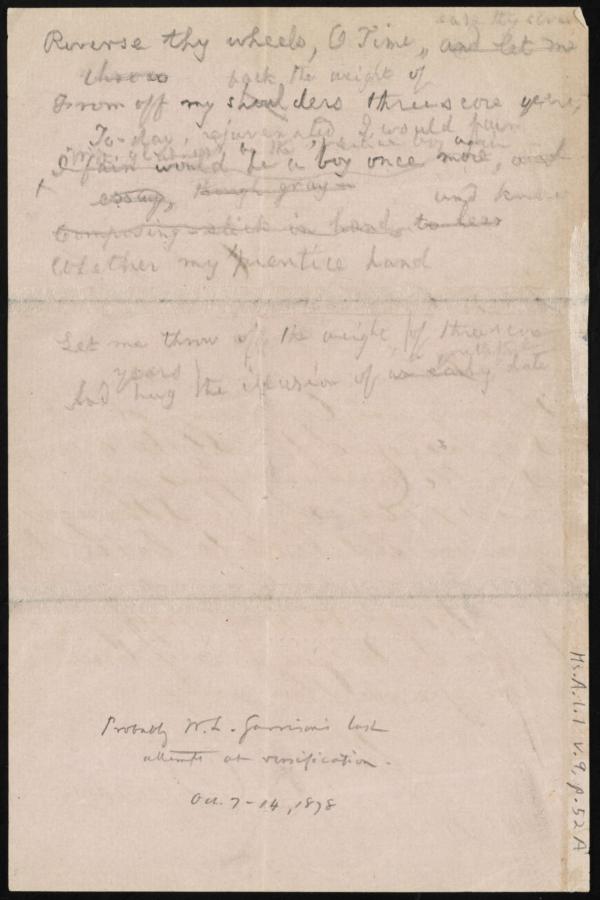 ease thy
Reverse thy wheels, O Time, and let me
throw back the weight of
From off my shoulders threescore years;
To-day, rejuvenated, I would fain
the 'prentice boy again
I fain would be a boy once more, and
essay, though gray and know
Composing-stick in hand, to
Whether my 'prentice hand
Let me throw off the weight of threescore
years
And hug the illusion of an early date
Probably W. L. Garrison's last
attempt at versification.
Oct. 7-14, 1878
Ms. A. 1. 1 v. 9, p. 52 A